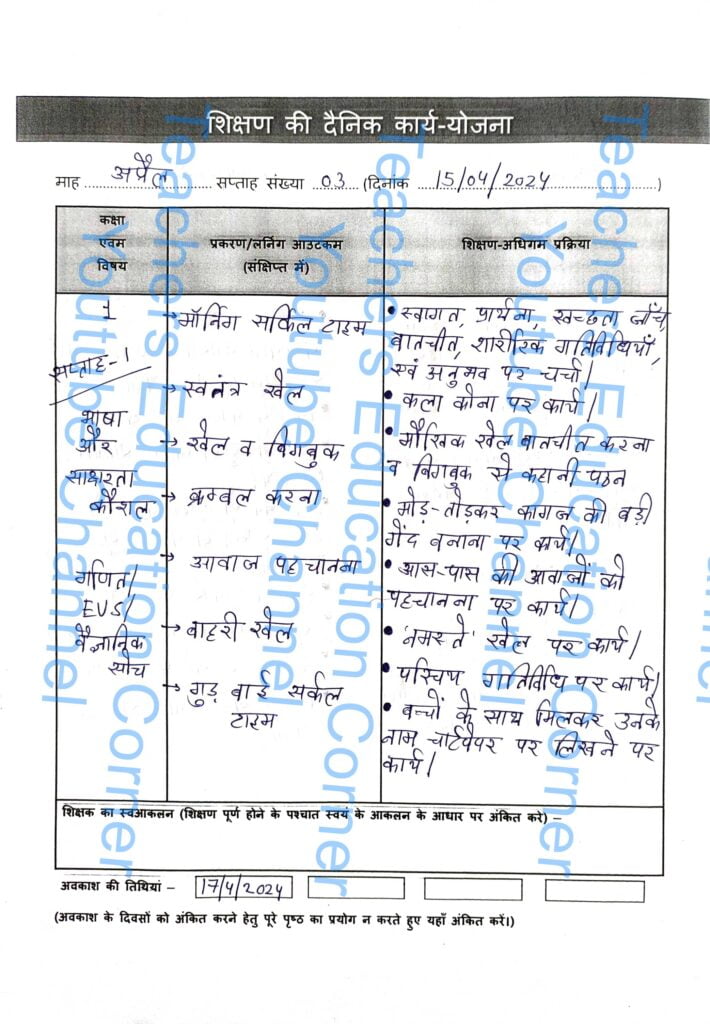 शिक्षण की दैनिक कार्य-योजना
माह ..... अप्रैल ..... सप्ताह संख्या ..03.. (दिनांक ...15/04/2024...)
कक्षा
एवम
विषय
प्रकरण/लर्निंग आउटकम
(संक्षिप्त में)
शिक्षण-अधिगम प्रक्रिया
1
सप्ताह-1
भाषा
और
साक्षरता
कौशल
गणित/
EVS/
वैज्ञानिक
सोच
→ मॉर्निंग सर्किल टाइम
→ स्वतंत्र खेल
→ खेल व बिगबुक
→ क्रम्बल करना
→ आवाज पहचानना
→ बाहरी खेल
→ गुड बाई सर्कल
टाइम
• स्वागत, प्रार्थना, स्वच्छता जाँच,
बातचीत, शारीरिक गतिविधियाँ,
स्वं अनुभव पर चर्चा।
• कला कोना पर कार्य।
• मौखिक खेल बातचीत करना
व बिगबुक से कहानी पठन
• मोड़-तोड़कर कागज की बड़ी
गेंद बनाना पर कार्य।
• आस-पास की आवाजों को
पहचानना पर कार्य।
• 'नमस्ते' खेल पर कार्य।
• परिचय गतिविधि पर कार्य।
• बच्चों के साथ मिलकर उनके
नाम चार्टपेपर पर लिखने पर
कार्य।
शिक्षक का स्वआकलन (शिक्षण पूर्ण होने के पश्चात स्वयं के आकलन के आधार पर अंकित करे) –
अवकाश की तिथियां – 17/4/2024
(अवकाश के दिवसों को अंकित करने हेतु पूरे पृष्ठ का प्रयोग न करते हुए यहाँ अंकित करें।)
Teachers Education Corner
Youtube Channel
Teachers Education Corner
Youtube Channel
Teachers Education Corner
Youtube Channel